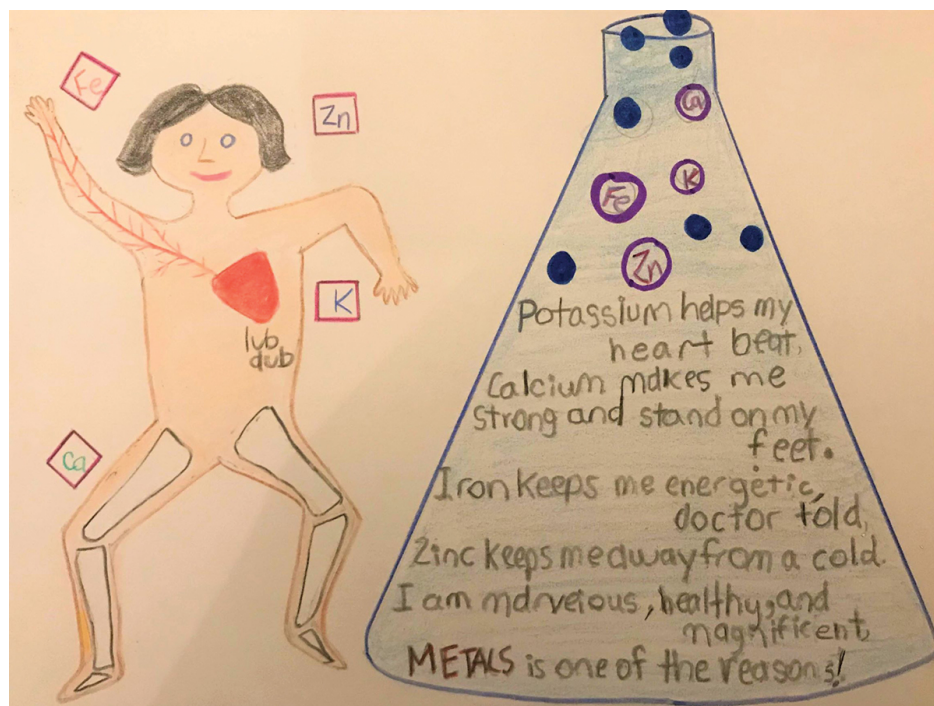 Fe
Zn
K
lub
dub
Ca
Ca
K
Fe
Zn
Potassium helps my
heart beat,
Calcium makes me
strong and stand on my
feet.
Iron keeps me energetic,
doctor told,
Zinc keeps me away from a cold.
I am marveious, healthy, and
magnificent,
METALS is one of the reasons!